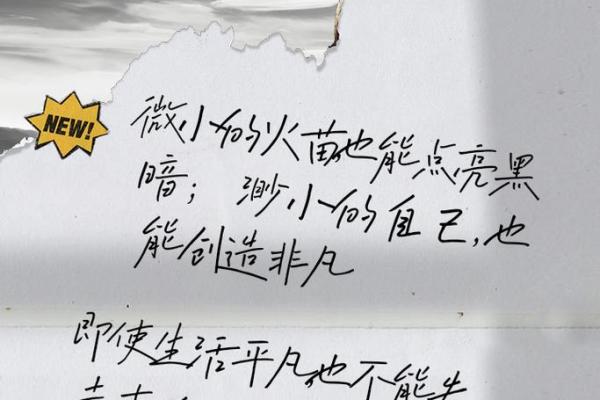 NEW!
微小的火苗也能点亮黑
暗；渺小的自己,也
能创造非凡
即使生活平凡,也不能失
去